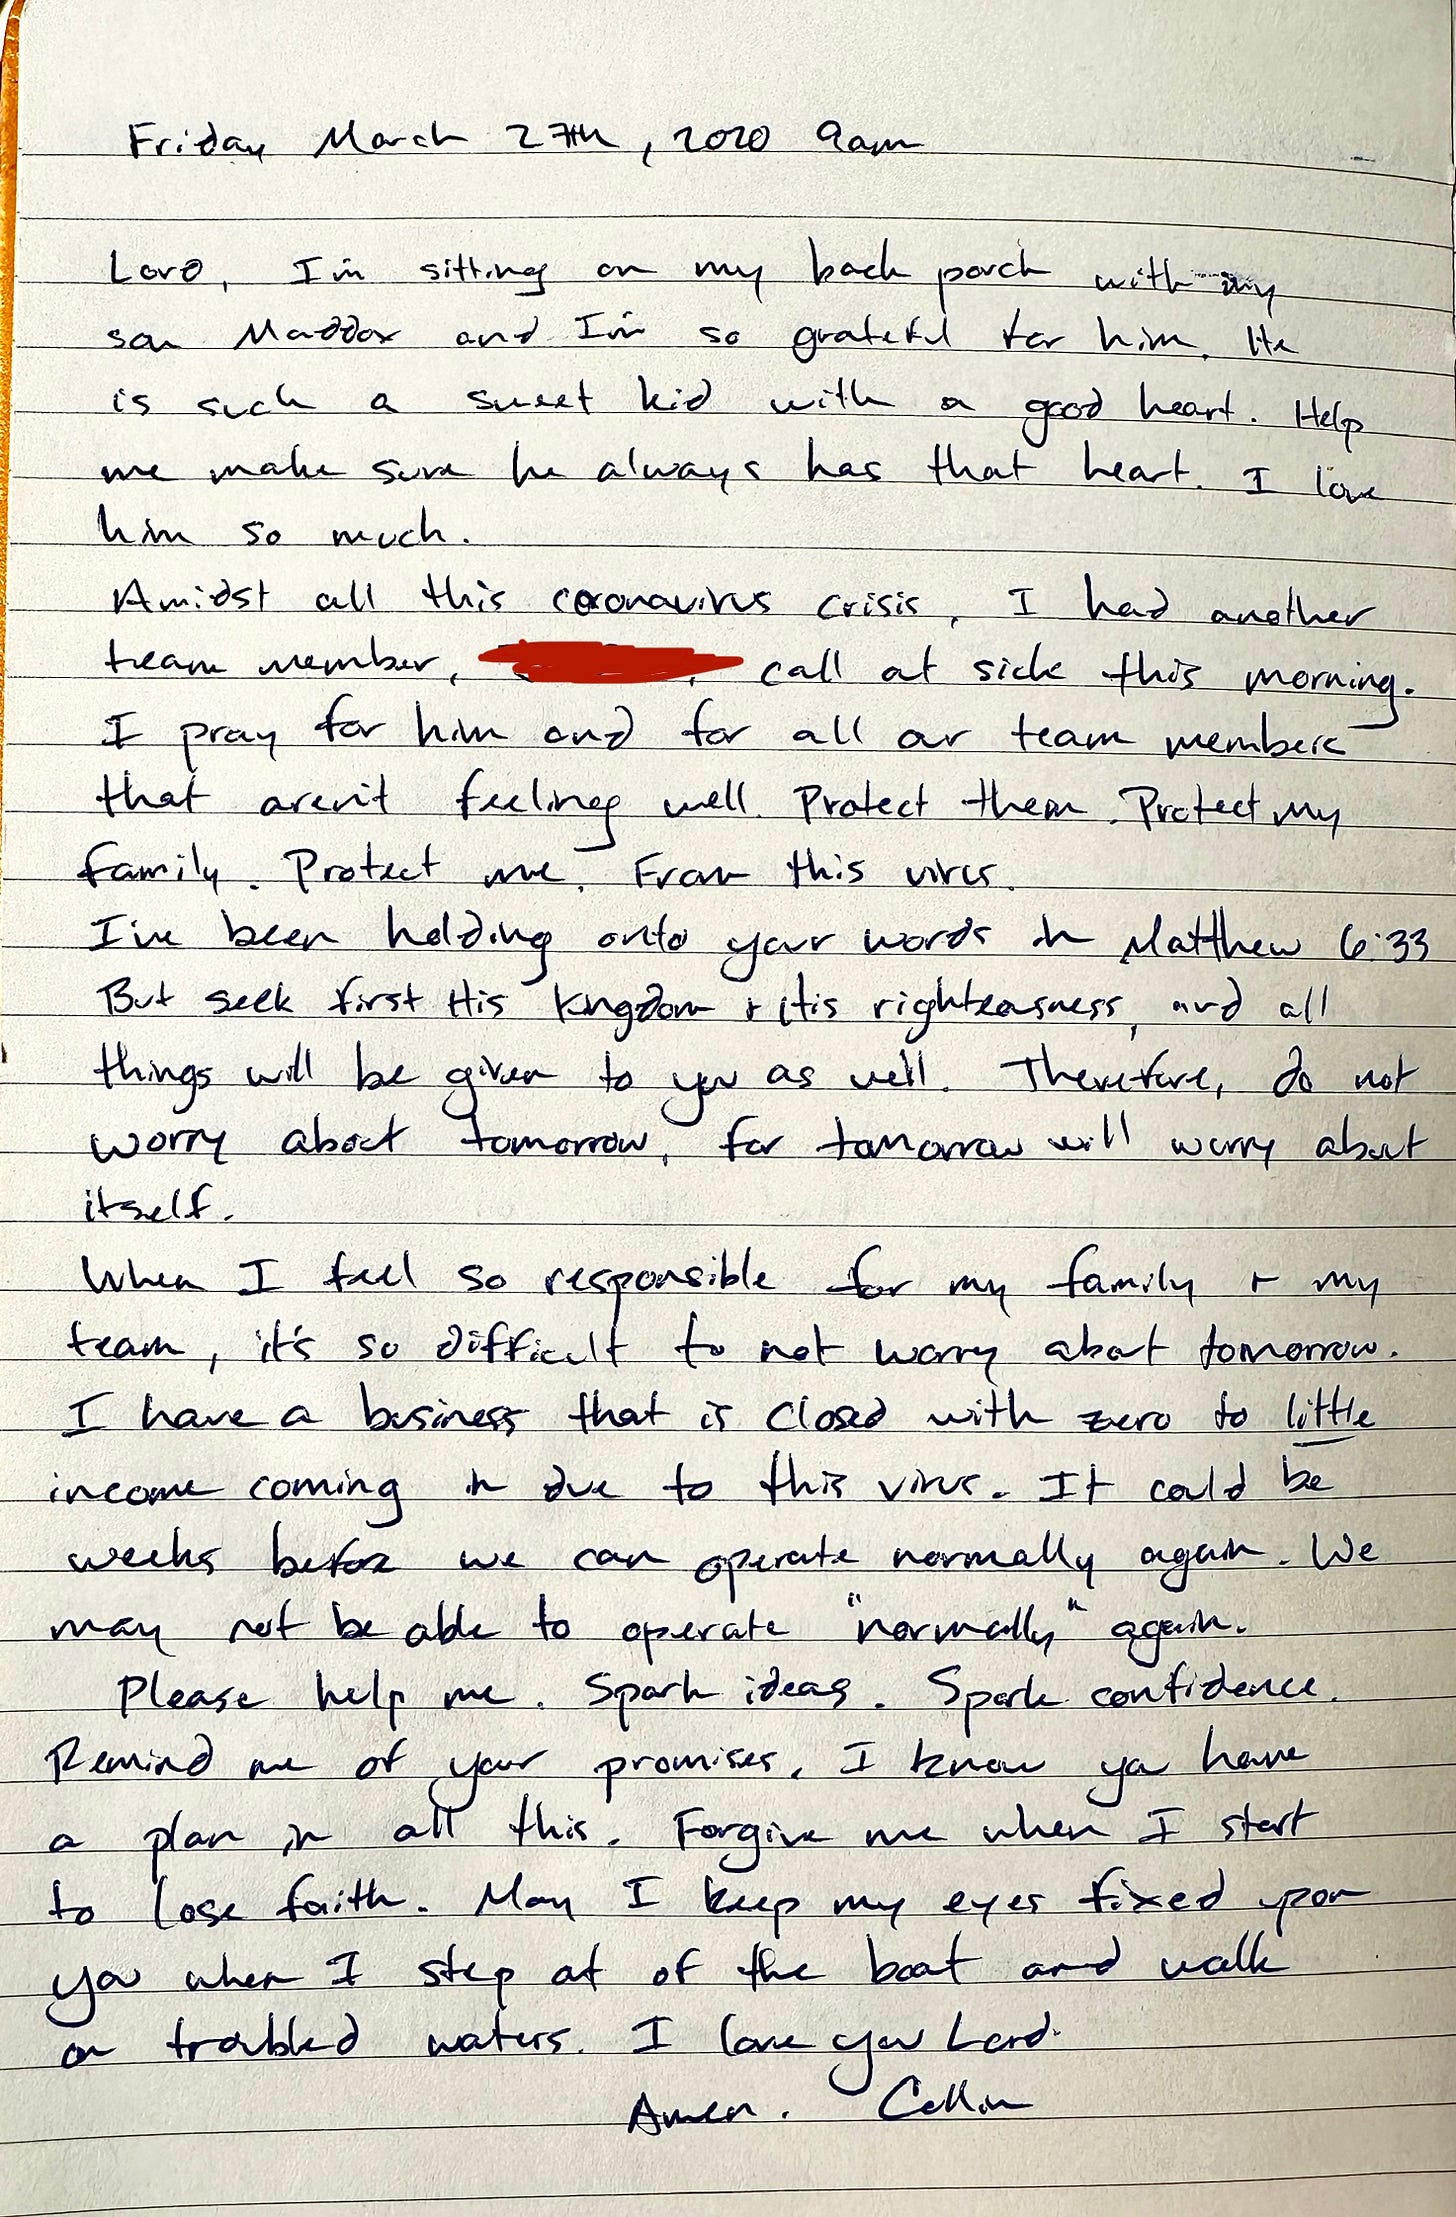 Friday March 27th, 2020 9am
Lord, I'm sitting on my back porch with my
son Maddox and I'm so grateful for him. He
is such a sweet kid with a good heart. Help
me make sure he always has that heart. I love
him so much.
Amidst all this coronavirus crisis, I had another
team member, , call out sick this morning.
I pray for him and for all our team members
that aren't feeling well. Protect them. Protect my
family. Protect me. From this virus.
I've been holding onto your words in Matthew 6:33
But seek first His Kingdom + His righteousness, and all
things will be given to you as well. Therefore, do not
worry about tomorrow, for tomorrow will worry about
itself.
When I feel so responsible for my family + my
team, it's so difficult to not worry about tomorrow.
I have a business that is closed with zero to little
income coming in due to this virus. It could be
weeks before we can operate normally again. We
may not be able to operate "normally" again.
Please help me. Spark ideas. Spark confidence.
Remind me of your promises. I know you have
a plan in all this. Forgive me when I start
to lose faith. May I keep my eyes fixed upon
you when I step out of the boat and walk
on troubled waters. I love you Lord.
Amen. Collin